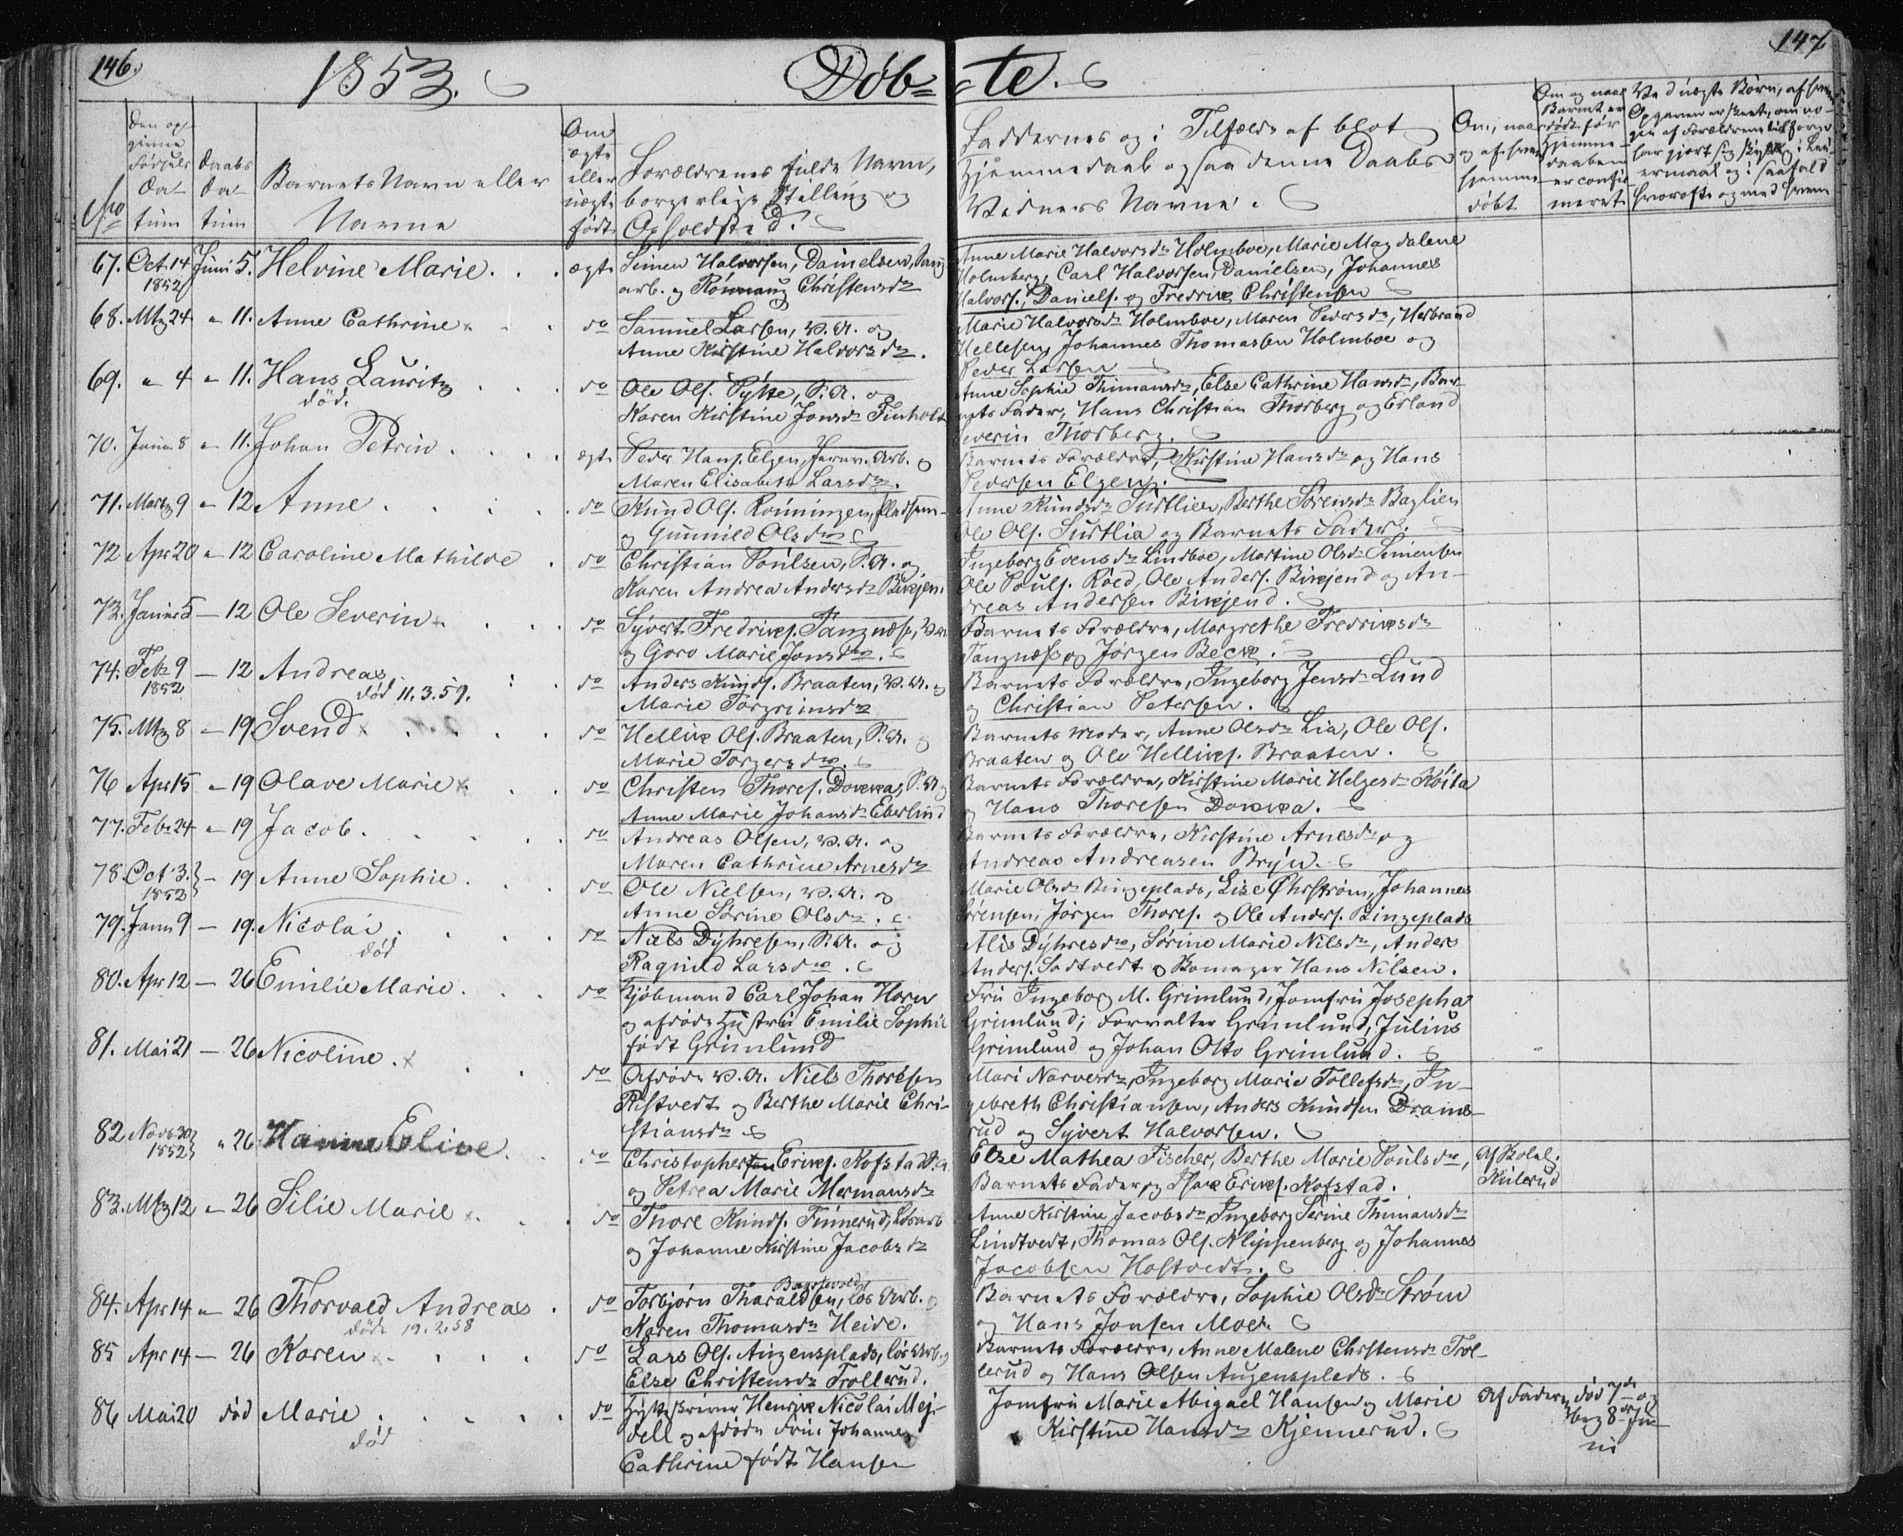 146.
1853.
Døb-
-te.
147
No
Den op-
givne
Fødsels
Da-
tum
Daabs
Da-
tum
Barnets Navn eller
Navne
Om
ægte
eller
uægte
født
Forældrenes fulde Navn,
borgerlige Stilling og
Opholdsted.
Faddernes og i Tilfælde af blot
Hjemmedaab ogsaa denne Daabs
Vidners Navne.
Om, naar
og af hvem
hjemme-
døbt
Om og naar
Barnet er
død før
Hjemme-
daaben
er confir-
meret
Ved uægte Børn, af hvem
Opgaven er skeet, om no-
gen af Forældrene tilforn
har gjort sig skyldig i Lei-
ermaal og i saafald
hvorofte og med hvem
67. Oct. 14 1852 Juni 5. Helvine Marie. ægte Simen Halvorsen, Danielsen,
arb. og Rønnaug Christensdr
Anne Marie Halvorsdr Holmboe, Marie Magdalene
Holmberg, Carl Halvorsen, Danielsen, Johannes
Halvors., Daniels. og Fredrik Christensen
68. Mtz 24 " 11. Anne Cathrine do Samuel Larsen, V.A. og
Anne Kirstine Halvorsdr.
Marie Halvorsdr Holmboe, Maren Pedersdr, Herbrand
Hellesen, Johannes Thomasen Holmboe og
Peder Larsen
69. " 4 " 11. Hans Lauritz do Ole Ols. Pytte, P.A. og
død.
Karen Kirstine Jonsdr Finholt
Anne Sophie Thimansdr, Else Cathrine Hansdr, Bar-
nets Fader, Hans Christian Thorberg og Erland
Severin Thorberg.
70. Janu 8 " 11. Johan Petrin ægte Peder Hans. Elgen, Jernv. Arb. og
Maren Elisabeth Larsdr.
Barnets Forældre, Kirstine Hansdr og Hans
Pedersen Elgen.
71. Martz 9 " 12 Anne do Knud Ols. Rønningen, Pladsem-
og Gunnild Olsdr
Anne Knudsdr Surtlien, Berthe Sørensdr Baglien
Ole Ols. Surtlia og Barnets Fader.
72 Apr 20 " 12 Caroline Mathilde do Christian Poulsen, P.A. og
Karen Andrea Andersdr Birkjend.
Ingeborg Evensdr Lindboe, Martine Olsdr Simensen
Ole Pouls. Røed, Ole Anders. Birkjend og An-
dreas Andersen Birkjend.
73. Januar 5 - 12 Ole Severin do Syvert Fredriks. Tangnæs, V.A.
og Goro Marie Jonsdr.
Barnets Forældre, Margrethe Fredriksdr
Tangnæs og Jørgen Beck.
74. Feb 9 1852 - 12 Andreas do Anders Knuds. Braaten, V.A. og
død 11.3.59.
Marie Torgrimsdr
Barnets Forældre, Ingeborg Jensdr Lund
og Christian Petersen.
75. Mtz 8 - 19. Svend do Hellik Ols. Braaten, P.A. og
Marie Torgersdr.
Barnets Moder, Anne Olsdr Lia, Ole Ols.
Braaten og Ole Helliks. Braaten.
76 Apr 15 - 19 Olave Marie do Christen Thores. Dokka, P.A. og
Anne Marie Johansdr Eberlund
Barnets Forældre, Kirstine Marie Helgesdr Koita
og Hans Thoresen Dokka.
77. Feb. 24 " 19 Jacob. do Andreas Olsen, V.A. og
Maren Cathrine Arnesdr
Barnets Forældre, Kirstine Arnesdr og
Andreas Andreasen Bryn.
78. Oct. 3. 1852 - 19 Anne Sophie. do Ole Nielsen, V.A. og
Anne Sørine Olsdr.
Marie Olsdr Bingeplads, Lise Øhrstrøm, Johannes
Sørensen, Jørgen Thores. og Ole Anders. Bingeplads
79. Janu 9 - 19. Nicolai. do Niels Dyhresen, P.A. og
død
Ragnild Larsdr.
Alis Dyhresdr, Sørine Marie Nilsdr, Anders
Anders. Sodtvedt og Bomager Hans Nilsen.
80. Apr 12 - 26 Emilie Marie. do Kjøbmand Carl Johan Horn
og afdøde Hustru Emilie Sophie
født Grimlund
Fru Ingeborg M. Grimlund, Jomfru Josepha
Grimlund, Forvalter Grimlund, Julius
Grimlund og Johan Otto Grimlund.
81. Mai 21 - 26 Nicoline. do Afdøde V.A. Niels Thoresen
Ristvedt og Berthe Marie Chri-
stiansdr
Mari Narvesdr, Ingeborg Marie Tollefsdr, In-
gebreth Christiansen, Anders Knudsen Drams-
rud og Syvert Halvorsen.
82 Novb 30 1852 " 26 Hanna Elise. do Christophersen Eriks. Kofstad P.A.
og Petrea Marie Hermansdr
Else Mathea Fischer, Berthe Marie Poulsdr,
Barnets Fader, og Isak Eriks. Kofstad.
Af Skolel.
Kulerud
83. Mtz 12 - 26 Silie Marie. do Thore Knuds. Finnerud, Løsarb
og Johanne Kirstine Jacobsdr
Anne Kirstine Jacobsdr, Ingeborg Serine Thimansdr
Lindtvedt, Thomas Ols. Klippenberg og Johannes
Jacobsen Hostvedt.
84. Apr 14 " 26 Thorvald Andreas. do Torbjørn Tharaldsen, løs Arb. og
døde 19.2.58
Karen Thomasdr Heide.
Barnets Forældre, Sophie Olsdr Strøm
og Hans Jonsen Moe.
85 Apr 14 - 26 Karen do Lars Ols. Augensplads, løs Arb. og
Else Christensdr Trollerud.
Barnets Forældre, Anne Malene Christensdr Trol-
lerud og Hans Olsen Augensplads.
86 Mai 20 død Marie do Hytteskriver Henrik Nicolai Mej-
død
dell og afdøde Fru Johanne
Cathrine født Hansen
Jomfru Marie Abigael Hansen og Marie
Kirstine Hansdr Kjennerud.
Af Fader
død 7de og
beg 8de Ju-
ni